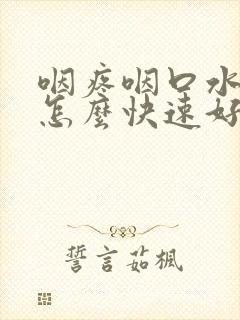 咽疼咽口水
怎麼快速好
誓言茹楓